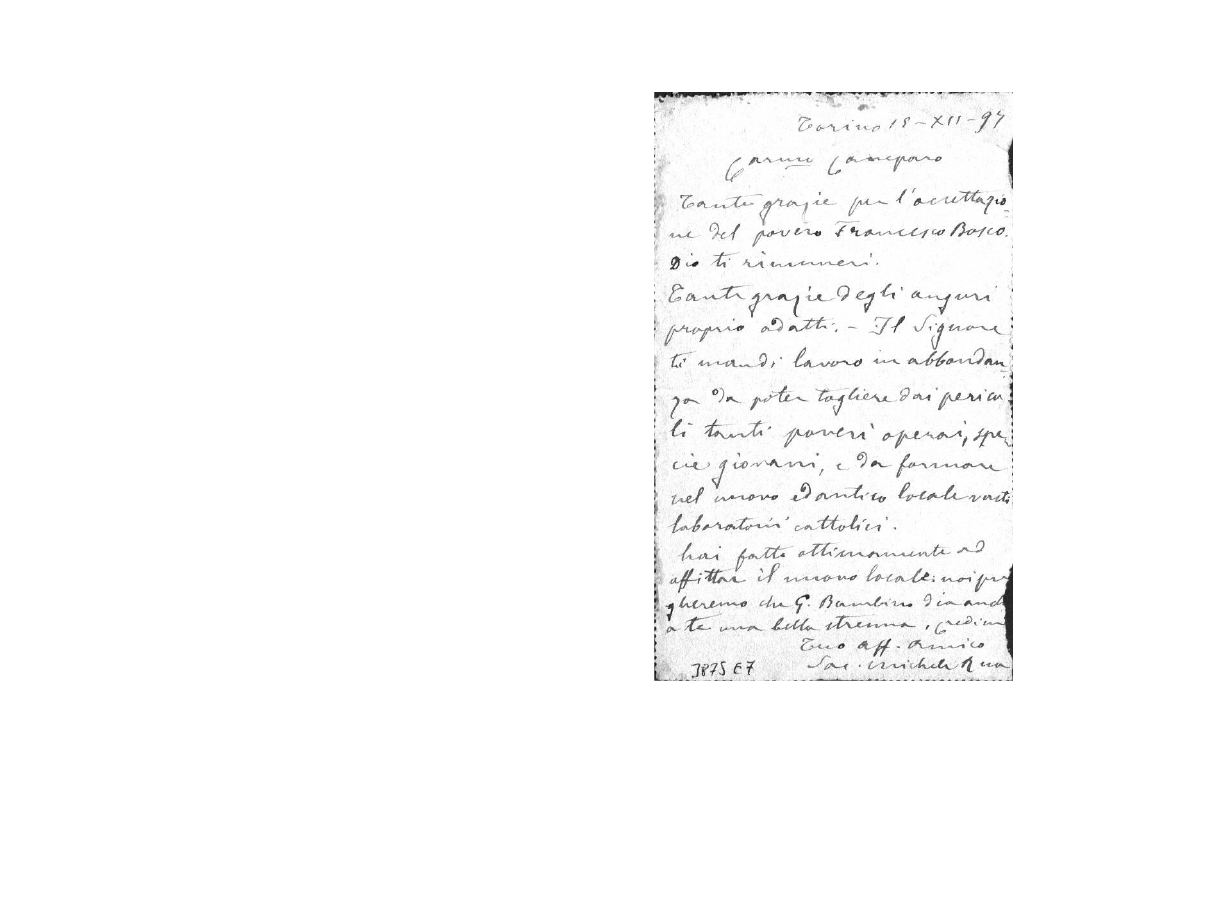 Torino 15-XII-97
Car.mo Caneparo
Tante grazie per l'accettazio-
ne del povero Francesco Bosco.
Dio ti rimuneri.
Tante grazie degli auguri
proprio adatti. - Il Signore
ti mandi lavoro in abbondan-
za da poter togliere dai perico
li tanti poveri operai, spe-
cie giovani, e da formare
nel nuovo ed antico locale vasti
laboratorii cattolici.
hai fatto ottimamente ad
affittar il nuovo locale: noi pre
gheremo che G. Bambino dia anche
a te una bella strenna. Credimi
Tuo aff. amico
Sac. Michele Rua
3875 E7